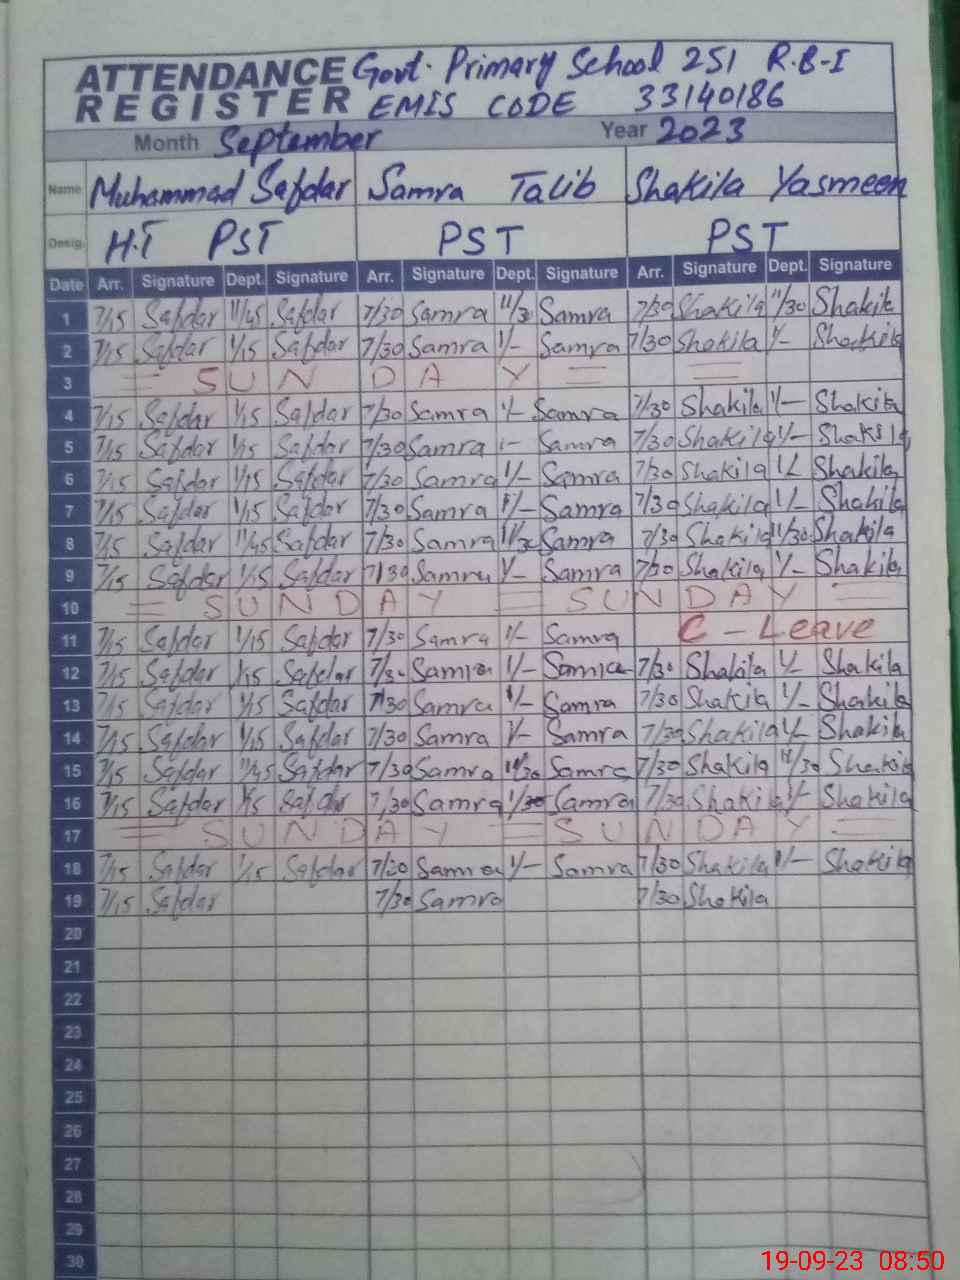 ATTENDANCE Govt. Primary School 251 R.B-I
REGISTER EMIS CODE 33140186
Month September Year 2023
Name Muhammad Safdar Samra Talib Shakila Yasmeen
Desig. H.T PST PST PST
Date Arr. Signature Dept. Signature Arr. Signature Dept. Signature Arr. Signature Dept. Signature
1 7/15 Safdar 11/45 Safdar 7/30 Samra 11/30 Samra 7/30 Shakila 11/30 Shakila
2 7/15 Safdar 1/15 Safdar 7/30 Samra 1/- Samra 7/30 Shakila 1/- Shakila
3 = SUNDAY = =
4 7/15 Safdar 1/15 Safdar 7/30 Samra 1/- Samra 7/30 Shakila 1/- Shakila
5 7/15 Safdar 1/15 Safdar 7/30 Samra 1/- Samra 7/30 Shakila 1/- Shakila
6 7/15 Safdar 1/15 Safdar 7/30 Samra 1/- Samra 7/30 Shakila 1/- Shakila
7 7/15 Safdar 1/15 Safdar 7/30 Samra 1/- Samra 7/30 Shakila 1/- Shakila
8 7/15 Safdar 11/45 Safdar 7/30 Samra 11/30 Samra 7/30 Shakila 11/30 Shakila
9 7/15 Safdar 1/15 Safdar 7/30 Samra 1/- Samra 7/30 Shakila 1/- Shakila
10 = SUNDAY = SUNDAY =
11 7/15 Safdar 1/15 Safdar 7/30 Samra 1/- Samra C - Leave
12 7/15 Safdar 1/15 Safdar 7/30 Samra 1/- Samra 7/30 Shakila 1/- Shakila
13 7/15 Safdar 1/15 Safdar 7/30 Samra 1/- Samra 7/30 Shakila 1/- Shakila
14 7/15 Safdar 1/15 Safdar 7/30 Samra 1/- Samra 7/30 Shakila 1/- Shakila
15 7/15 Safdar 11/45 Safdar 7/30 Samra 11/30 Samra 7/30 Shakila 11/30 Shakila
16 7/15 Safdar 1/15 Safdar 7/30 Samra 1/30 Samra 7/30 Shakila 1/- Shakila
17 = SUNDAY = SUNDAY =
18 7/15 Safdar 1/15 Safdar 7/30 Samra 1/- Samra 7/30 Shakila 1/- Shakila
19 7/15 Safdar 7/30 Samra 7/30 Shakila
20
21
22
23
24
25
26
27
28
29
30
19-09-23 08:50